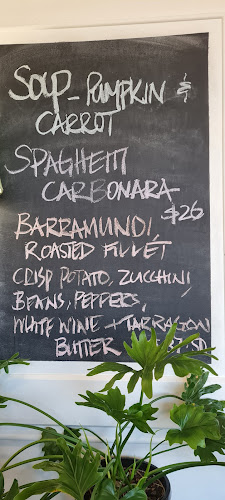 SOUP - PUMPKIN &
CARROT
SPAGHETTI
CARBONARA
$26
BARRAMUNDI,
ROASTED FILLET
CRISP POTATO, ZUCCHINI,
BEANS, PEPPERS,
WHITE WINE + TARRAGON
BUTTER